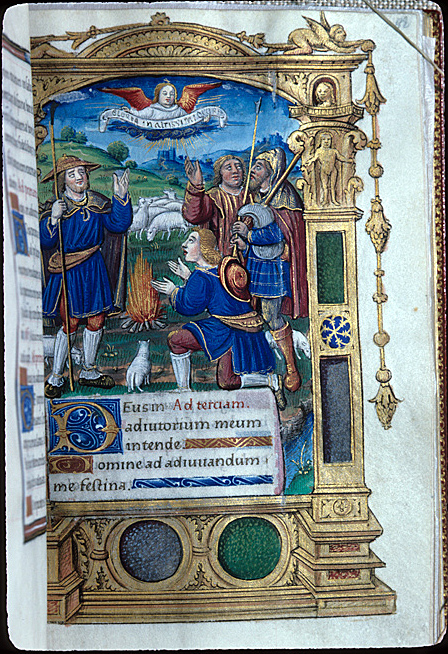 gloria in altissimis deo
Deus in Ad terciam.
adiutorium meum
intende.
Domine ad adiuuandum
me festina.